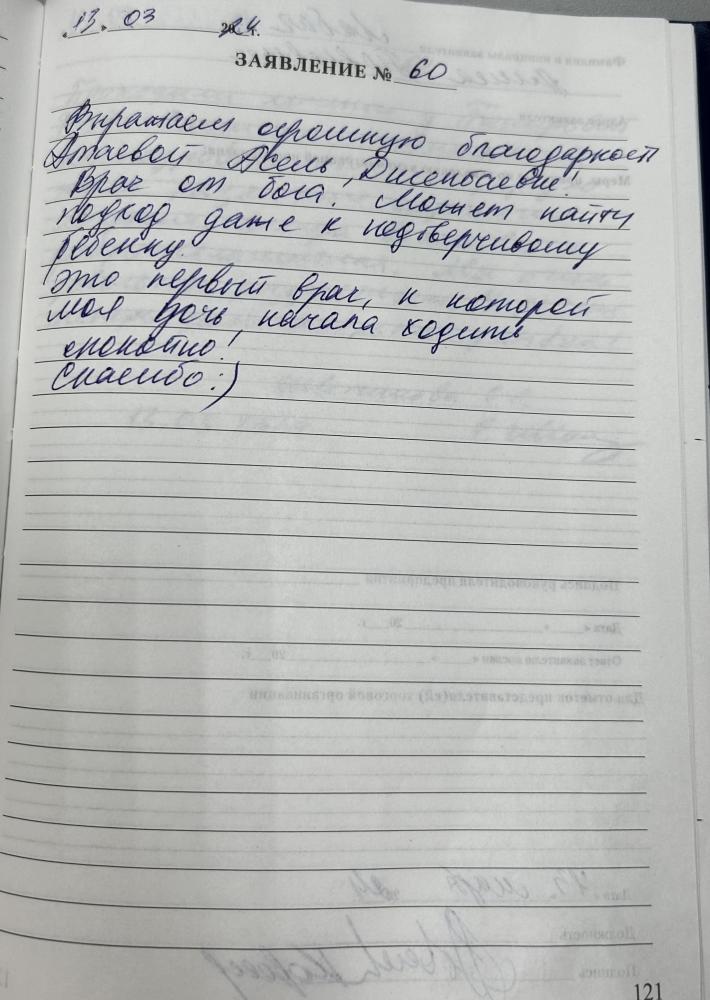 13. 03 2024 г.
ЗАЯВЛЕНИЕ № 60
Выражаем огромную благодарность
Атаевой Асель Дисенбаевне!
Врач от бога! Может найти
подход даже к недоверчивому
ребенку.
Это первый врач, к которой
моя дочь начала ходить
спокойно!
Спасибо :)
121